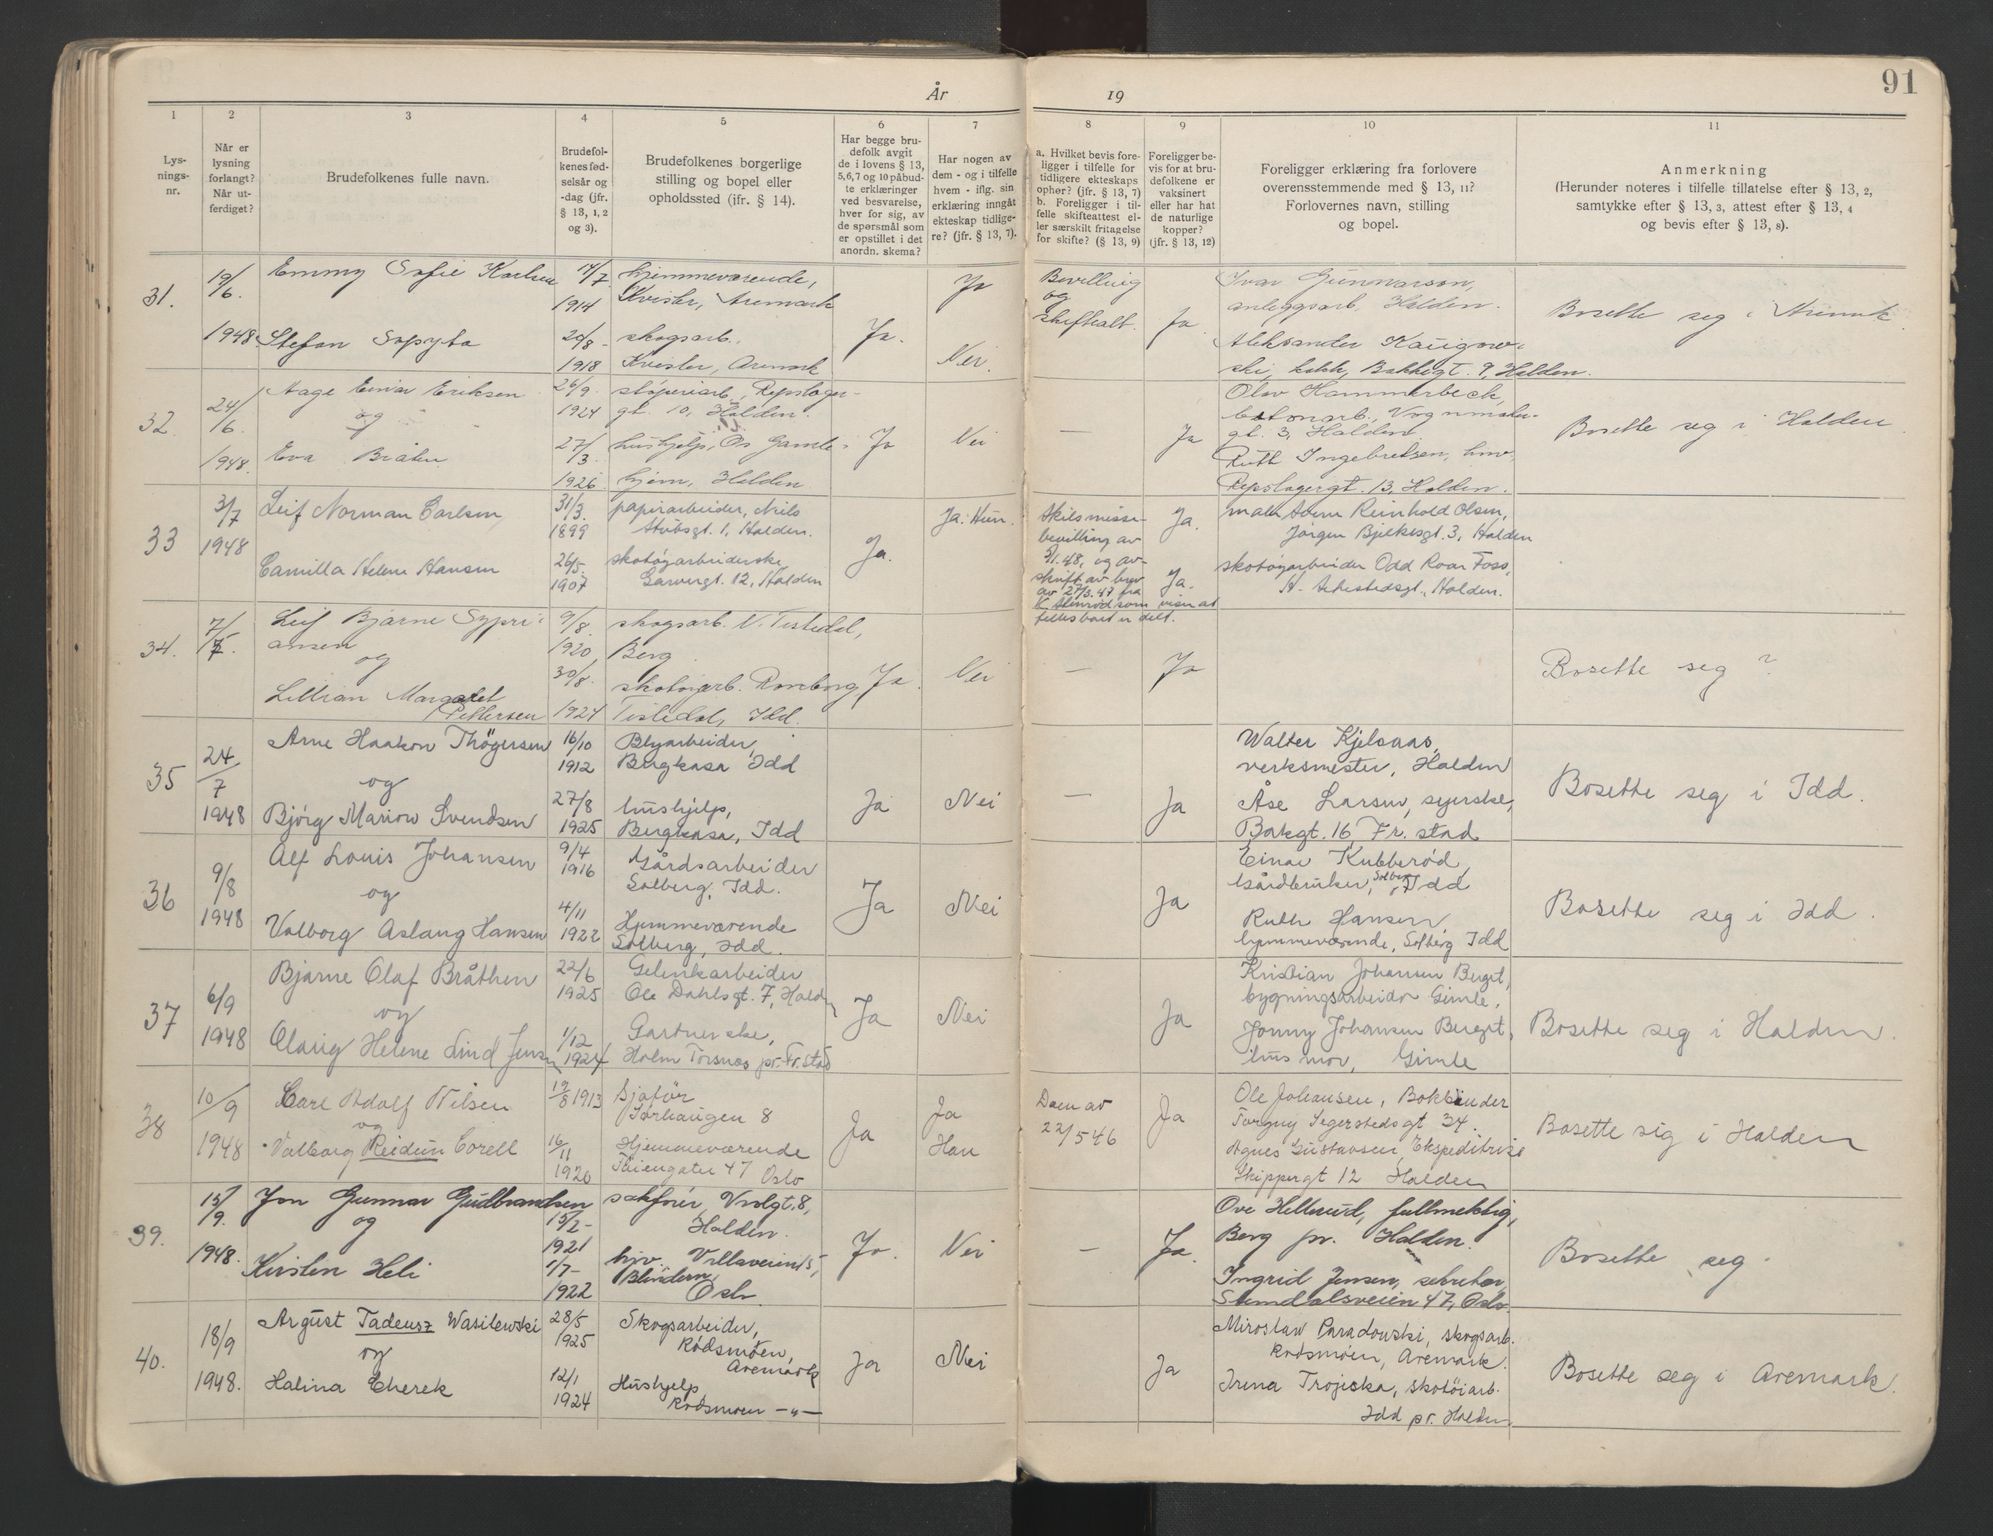 91
År
19
1
2
3
4
5
6
7
8
9
10
11
Lys-
nings-
nr.
Når er
lysning
forlangt?
Når ut-
ferdiget?
Brudefolkenes fulle navn.
Brudefol-
kenes fød-
selsår og
-dag (jfr.
§ 13, 1, 2
og 3).
Brudefolkenes borgerlige
stilling og bopel eller
opholdssted (jfr. § 14).
Har begge bru-
defolk avgit
de i lovens § 13,
5,6,7 og 10 påbud-
te erklæringer
ved besvarelse,
hver for sig, av
de spørsmål som
er opstillet i det
anordn. skema?
Har nogen av
dem - og i tilfelle
hvem - iflg. sin
erklæring inngåt
ekteskap tidlige-
re? (jfr. § 13, 7).
a. Hvilket bevis fore-
ligger i tilfelle for
tidligere ekteskaps
ophør? (jfr. § 13, 7)
b. Foreligger i til-
felle skifteattest el-
ler særskilt fritagelse
for skifte? (§ 13, 9)
Foreligger be-
vis for at bru-
defolkene er
vaksinert
eller har hat
de naturlige
kopper?
(jfr. § 13, 12)
Foreligger erklæring fra forlovere
overensstemmende med § 13, 11?
Forlovernes navn, stilling
og bopel.
Anmerkning
(Herunder noteres i tilfelle tillatelse efter § 13, 2,
samtykke efter § 13, 3, attest efter § 13, 4
og bevis efter § 13, 8).
31.
19/6.
1948
Emmy Sofie Karlsen
Stefan Sopyta
17/7
1914
20/8-
1918
hjemmeværende,
Kvisler, Aremark
skogsarb.
Kvisler, Aremark
Ja.
Ja
Nei.
Bevilling
og
skifteatt.
Ja.
Ivar Gunnarson,
anleggsarb. Halden.
Aleksander
ski, Bakkegt. 9, Halden.
Bosette seg i Aremark
32.
24/6
1948.
Aage Einar Eriksen
og
Eva Bråten
26/9.
1924
27/3.
1926.
støperiarb., Repslager-
gt. 10, Halden.
hushjelp, Os Gamle-
hjem, Halden.
Ja
Nei
—
Ja
Olav Hammerbeck,
betonarb. Vognmaker-
gt. 3, Halden
Ruth Ingebretsen, hmv,
Repslagergt. 13, Halden.
Bosette seg i Halden
33
3/7
1948
Leif Norman Carlsen,
Camilla Helene Hansen
31/3.
1899
26/5.
1907
papirarbeider, Nils
Stubsgt. 1, Halden.
skotøyarbeiderske,
Garvergt. 12, Halden
Ja.
Ja. Hun.
Skilsmisse-
bevilling av
5/1.48, og av-
skrift av brev
av 27/3.47 fra
som viser at
fellesboet er delt.
Ja.
Ja.
maler Arne Reinhold Olsen,
Jørgen Bjelkesgt. 3, Halden
skotøyarbeider Odd Roar Foss,
Halden.
34.
7/7.
Leif Bjarne Sypri-
ansen
og
Lillian Margaret
Pettersen
9/8.
1920
30/8.
1924
skogsarb. V. Tistedal,
Berg
skotøiarb. Rosborg
Tistedal, Idd.
Ja.
Nei
—
Ja
Bosette seg ?
35
24/7
1948
Arne Haakon Thøgersen
og
Bjørg Marion Svendsen
16/10
1912
27/8
1925
Blyarbeider,
Bergkasa Idd
hushjelp,
Bergkasa, Idd
Ja
Nei
—
Ja
Walter Kjelsaas,
verksmester, Halden
Åse Larsen, syerske,
Bakgt. 16 Fr.stad
Bosette seg i Idd.
36
9/8
1948
Alf Louis Johansen
og
Valborg Aslaug Hansen
9/4
1916
4/11
1922
Gårdsarbeider
Solberg, Idd.
Hjemmeværende
Solberg, Idd.
Ja
Nei
Ja
Einar Kubberød,
Gårdbruker, Solberg, Idd
Ruth Hansen
hjemmeværende, Solberg Idd
Bosette seg i Idd.
37
6/9
1948
Bjarne Olaf Bråthen
og
Olaug Helene Lind Jensen
22/6
1925
1/12
1924
Gelenkarbeider
Ole Dahlsgt. 7, Halden
Gartnerske,
Holm Torsnes pr. Fr.stad
Ja
Nei
Ja
Kristian Johansen Berget,
bygningsarbeider Gimle,
Jonny Johansen Berget,
husmor, Gimle
Bosette seg i Halden.
38
10/9
1948
Carl Adolf Nilsen
og
Valborg Reidun Corell
19/8 1913
16/11
1920
Sjåfør
Sørhaugen 8
Hjemmeværende
Thiengater 47 Oslo
Ja
Ja
Han
Døen av
22/5 46
Ja
Ole Johansen, Bokbinder
Torgny Segerstedsgt 34.
Agnes Gustavsen Ekspeditrise
Skippergt 12 Halden
Bosette seg i Halden
39.
15/9.
1948.
Jon Gunnar Gudbrandsen
og
Kirsten Heli
15/2-
1921
1/7-
1922
Halden.
hjv. Villaveien 5,
Blindern,
Oslo.
Ja.
Nei
—
Ja.
Ove Hellerud, fullmektig,
Berg pr. Halden.
Ingrid Jensen, sekretær,
47, Oslo
Bosette seg.
40.
18/9
1948.
August Tadeusz Wasilewski
og
Halina Cherek
28/5
1925
12/1
1924
Skogsarbeider,
Rødsmoen,
Aremark
Hushjelp
Rødsmoen —"—
Ja
Nei
Ja
Miroslaw Paradowski, skogsarb.
Rødsmoen, Aremark.
Irena Trojeska, skotøiarb.
Idd pr. Halden.
Bosette seg i Aremark.